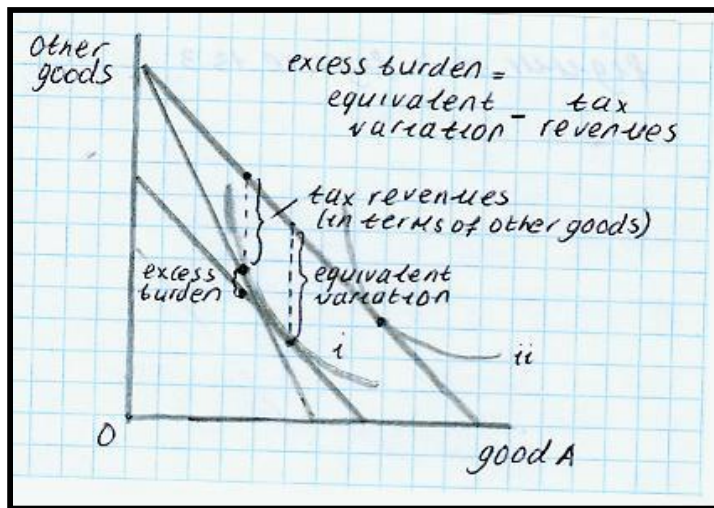 Other
goods
excess burden =
equivalent
variation - tax
revenues
tax revenues
(in terms of other goods)
excess
burden
equivalent
variation
i
ii
O
good A